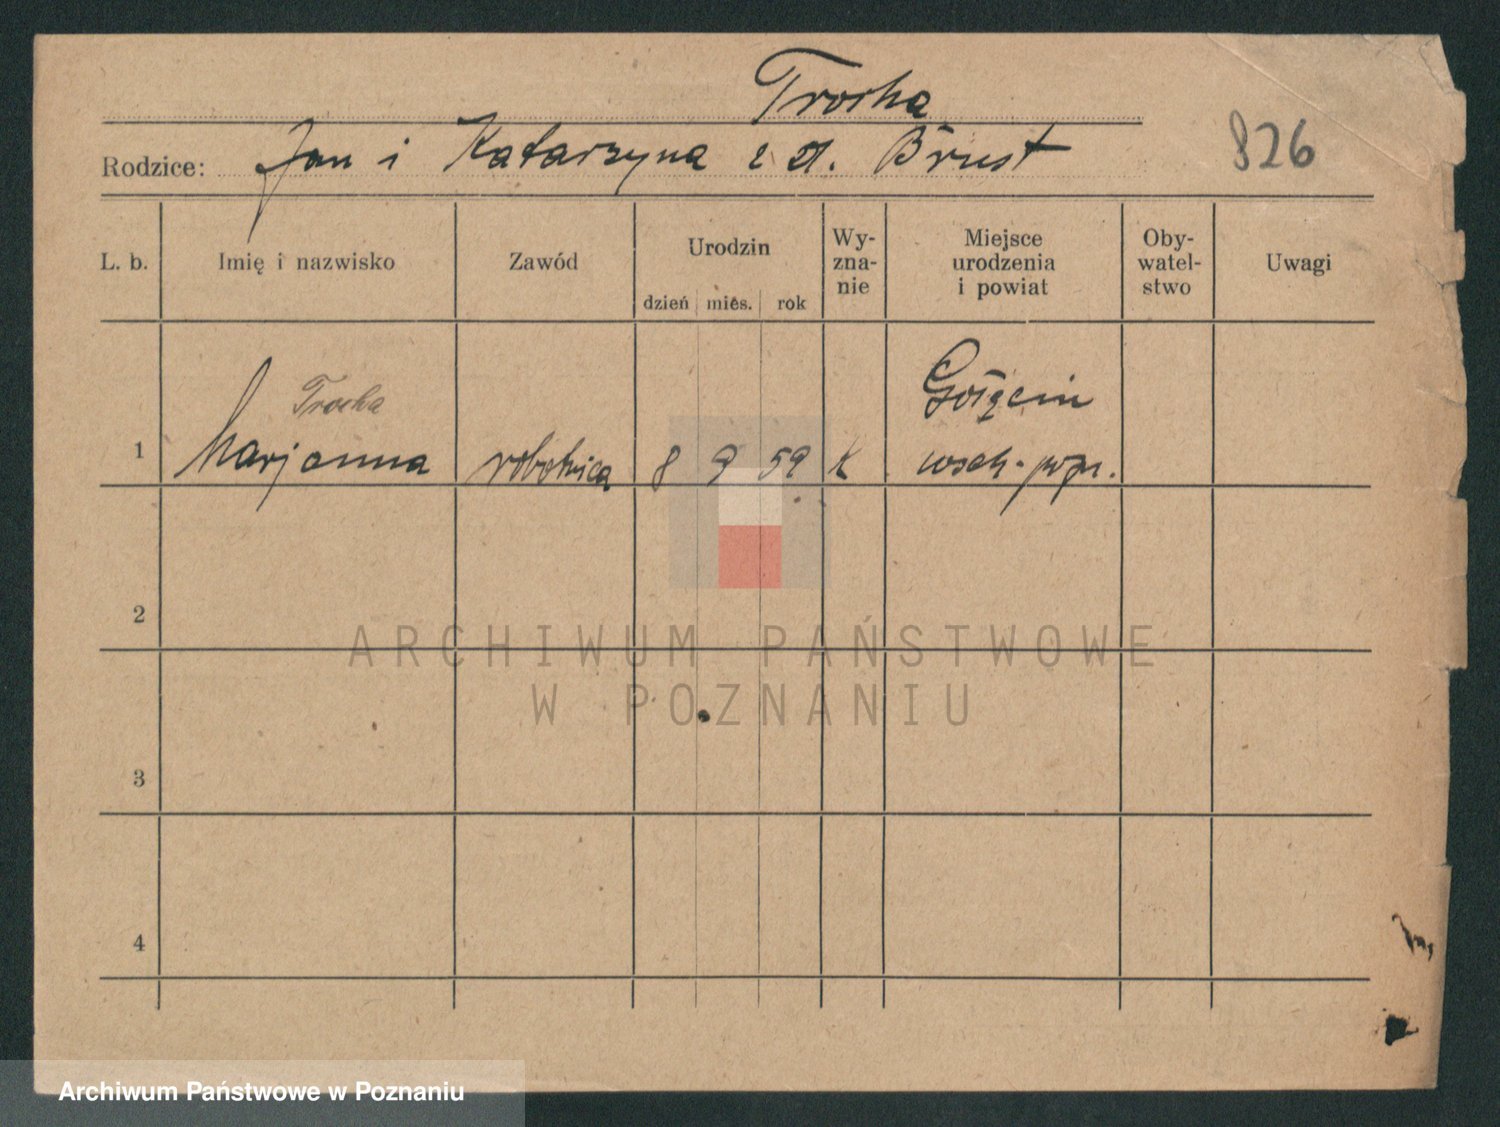 Trocha
Rodzice: Jan i Katarzyna z d. Brust
826
L. b. Imię i nazwisko Zawód Urodzin dzień mies. rok Wy-zna-nie Miejsce urodzenia i powiat Oby-watel-stwo Uwagi
Trocha Gołęcin
1 Marjanna robotnica 8 9 59 K wsch.-pozn.
2
3
4
ARCHIWUM PAŃSTWOWE
W POZNANIU
Archiwum Państwowe w Poznaniu